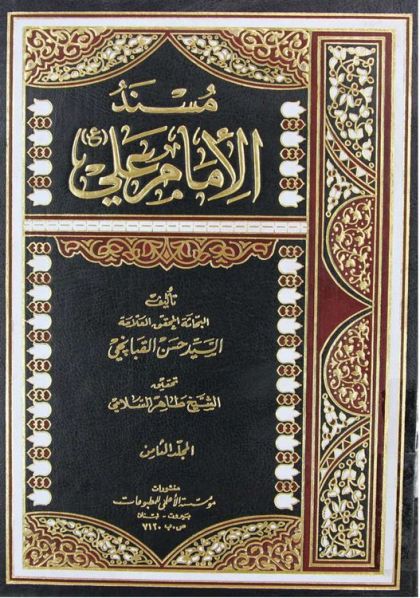 مُسْنَدُ
الإمَامِ عَلي (ع)
تأليف
البحاثة المحقق العلامة
السيد حسن القبانچي
تحقيق
الشيخ طاهر السلامي
المجلد الثامن
منشورات
مؤسسة الأعلمي للمطبوعات
بيروت - لبنان
ص.ب ٧١٢٠